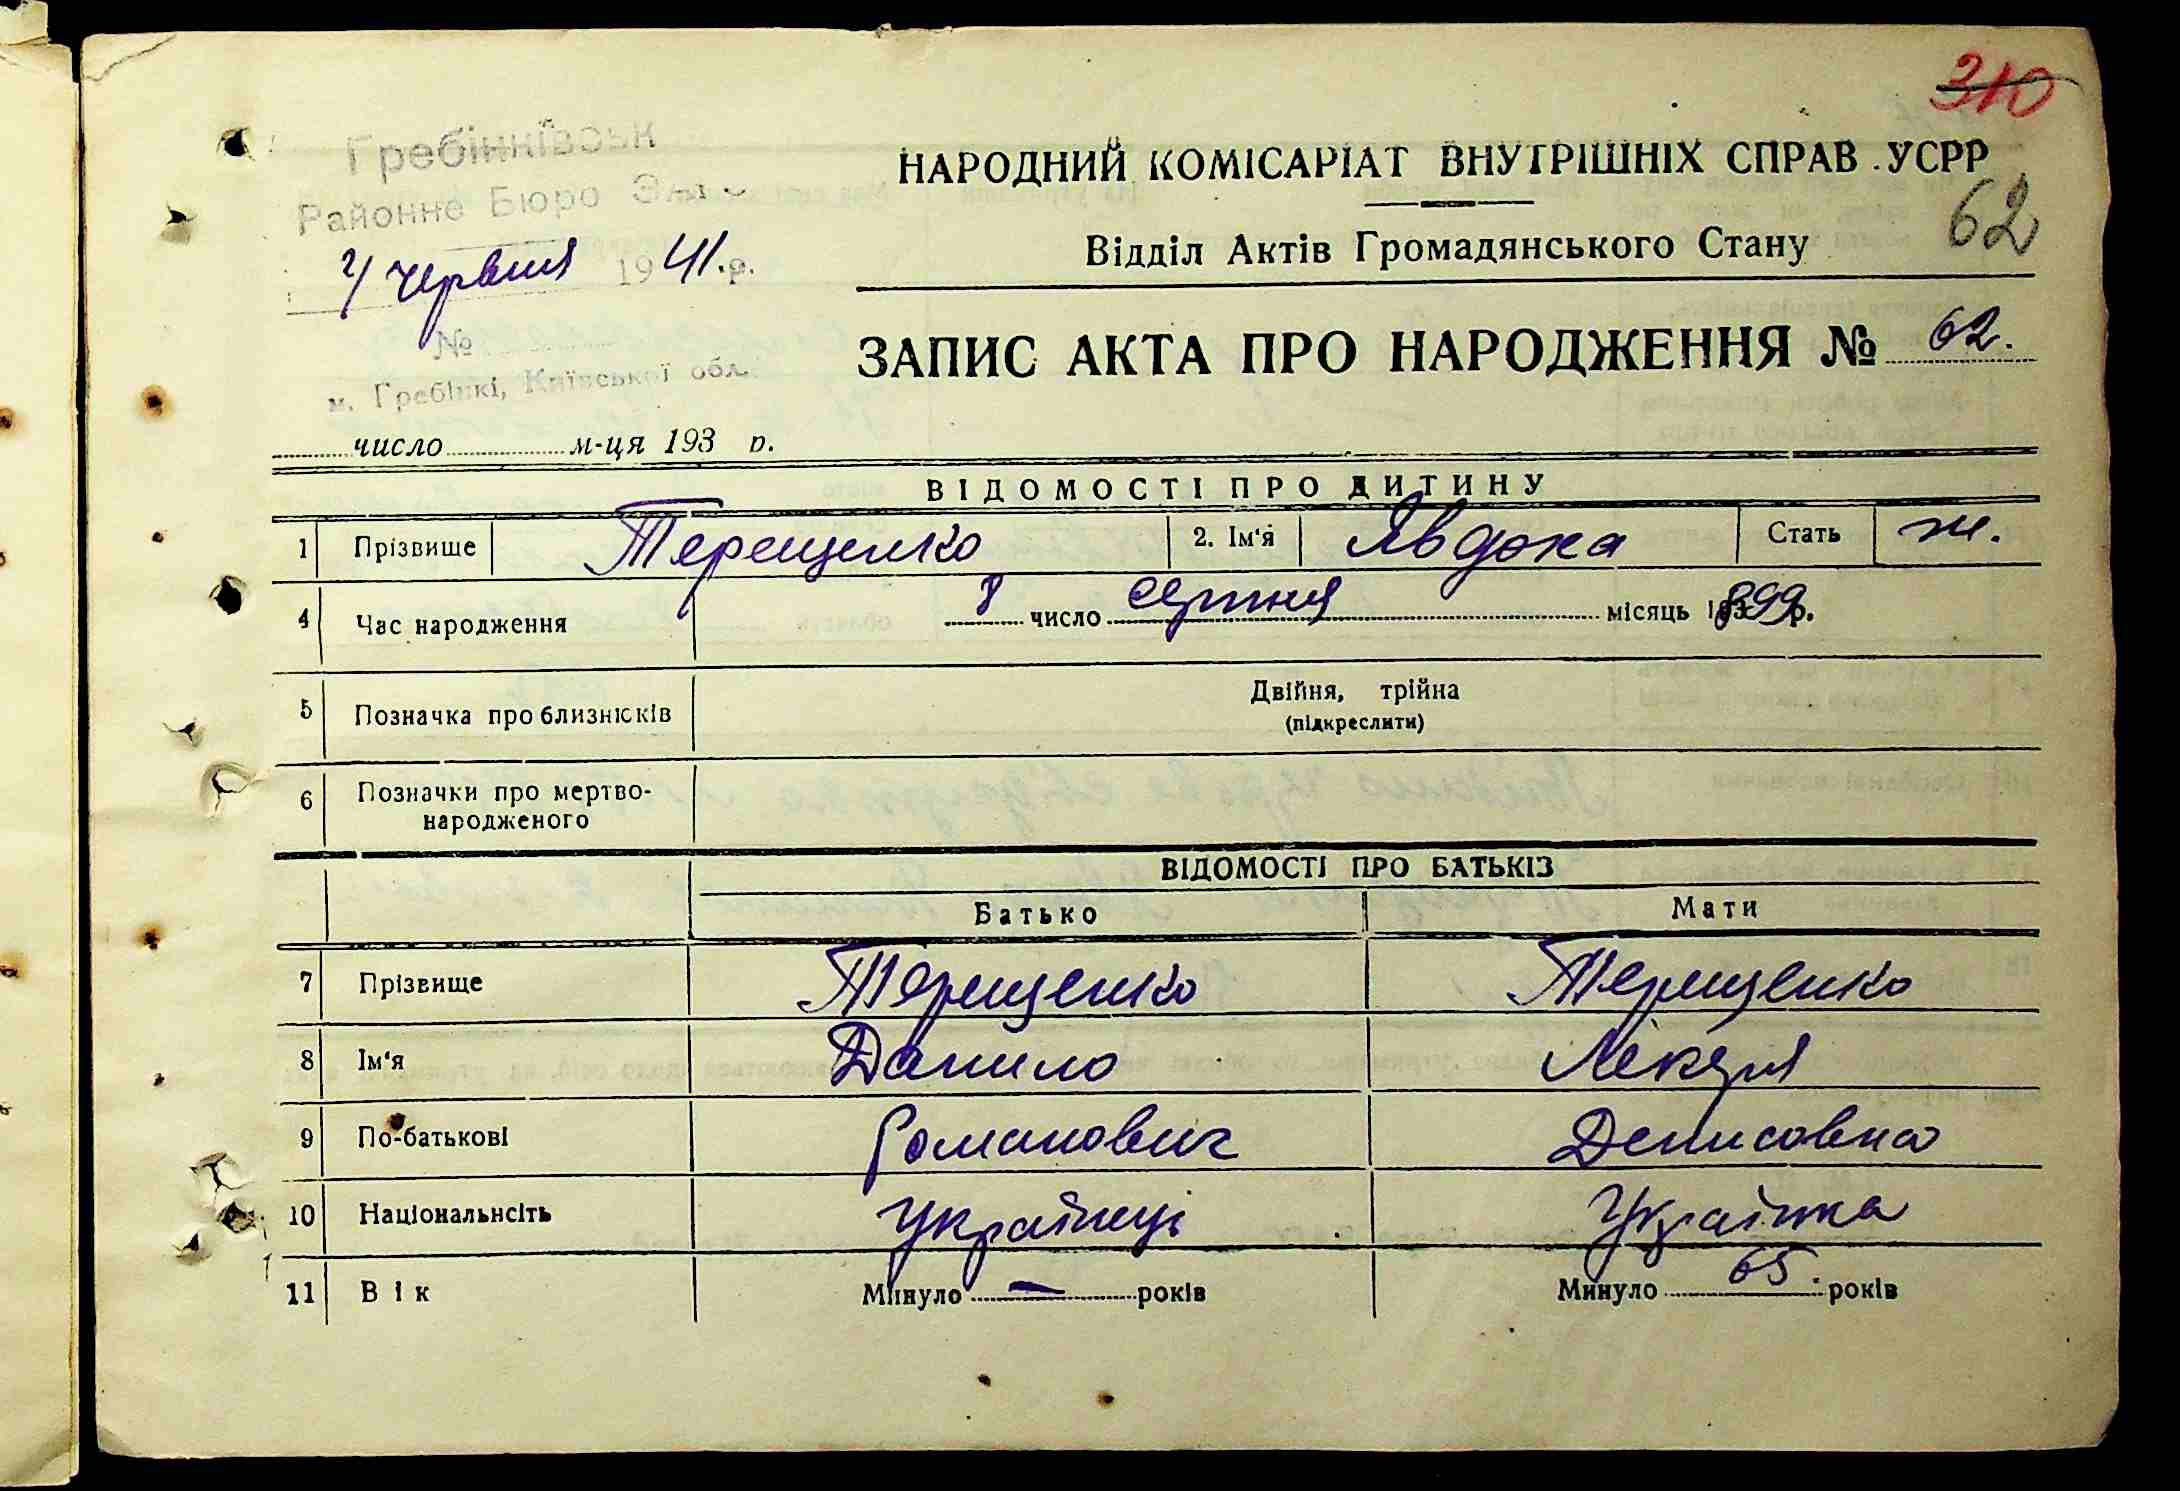 310
Гребінківськ
Районне Бюро ЗАГС
НАРОДНИЙ КОМІСАРІАТ ВНУТРІШНІХ СПРАВ УСРР
62
червня 1941.р.
Відділ Актів Громадянського Стану
№
м. Гребінкі, Київської обл.
ЗАПИС АКТА ПРО НАРОДЖЕННЯ № 62.
число м-ця 193 р.
ВІДОМОСТІ ПРО ДИТИНУ
1 Прізвище Терещенко 2. Ім'я Явдоха Стать ж.
4 Час народження 8 число серпня місяць 1899 р.
5 Позначка про близнюків Двійня, трійна
(підкреслити)
6 Позначки про мертво-
народженого
ВІДОМОСТІ ПРО БАТЬКІВ
Батько Мати
7 Прізвище Терещенко Терещенко
8 Ім'я Данило Лікеря
9 По-батькові Романович Денисовна
10 Національнсіть Українці Українка
11 Вік Минуло — років Минуло 65 років